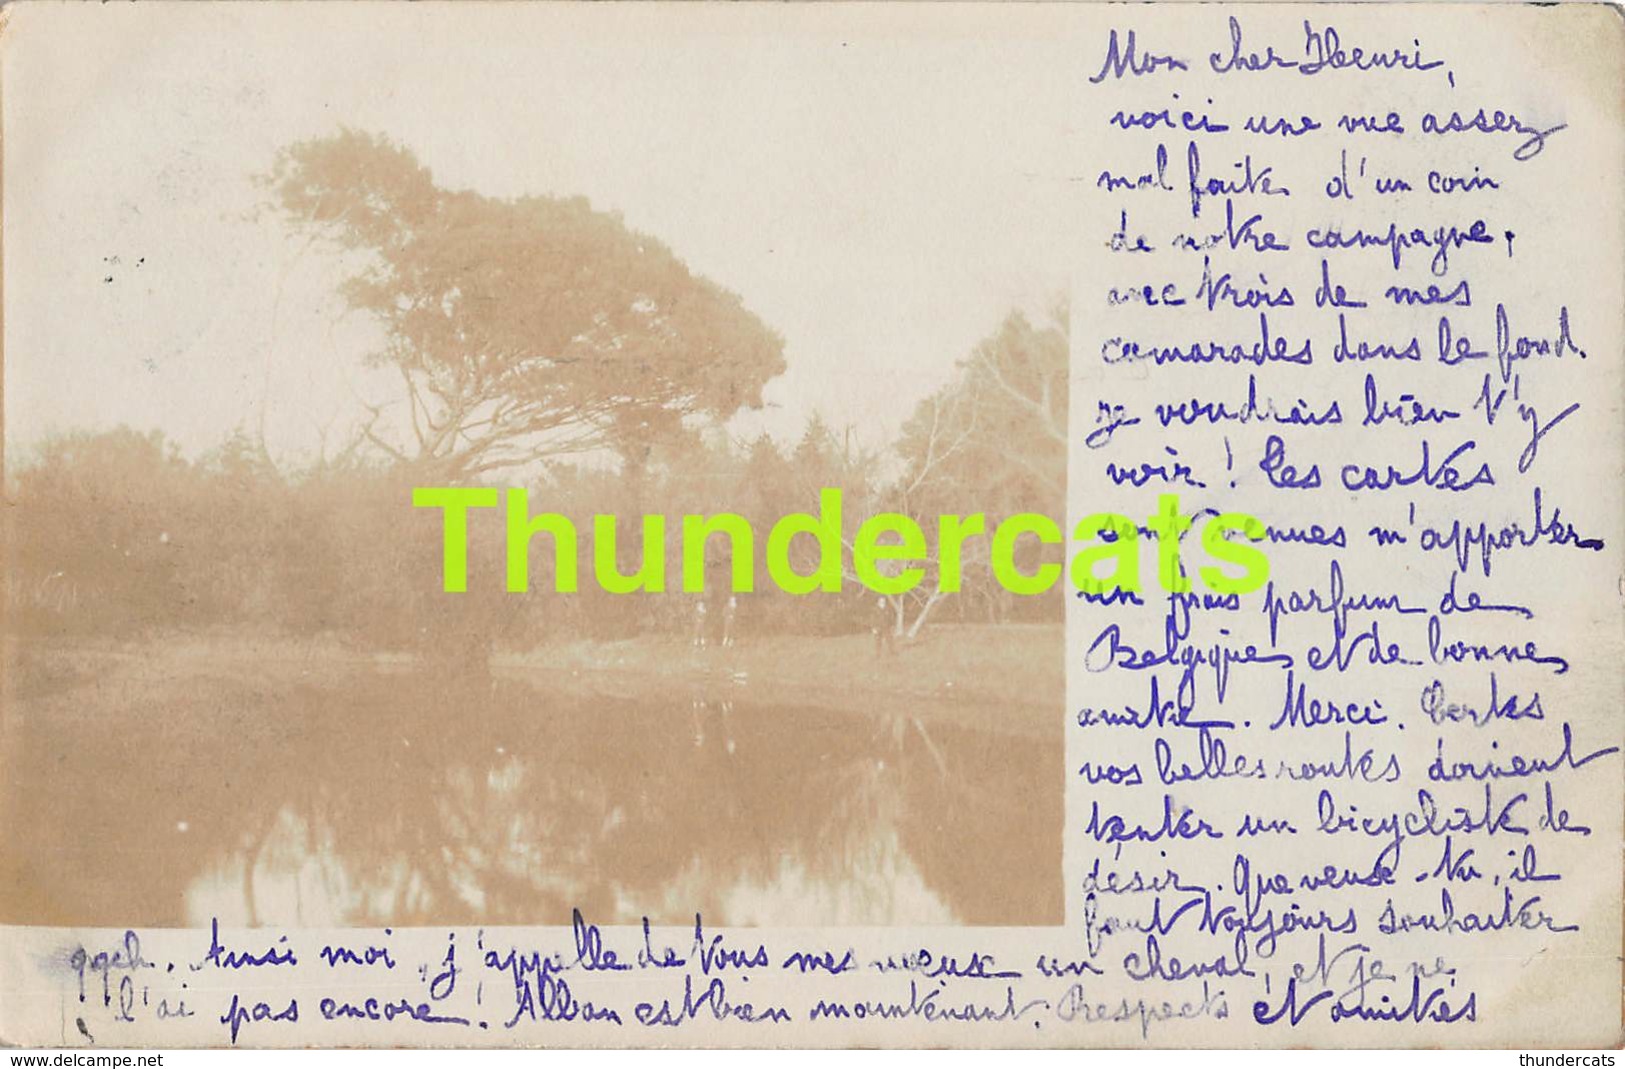 Mon cher Henri,
voici une vue assez
mal faite d'un coin
de notre campagne,
avec trois de mes
camarades dans le fond.
Je voudrais bien t'y
voir ! Les cartes
sont venues m'apporter
un frais parfum de
Belgique, et de bonne
amitié. Merci. Certes
vos belles routes doivent
tenter un bicycliste de
désir. Que veux-tu, il
faut toujours souhaiter
qqch. Ainsi moi, j'appelle de tous mes vœux un cheval, et je ne
l'ai pas encore ! Alban est bien maintenant. Respects et amitiés
Thundercats
thundercats
thundercats